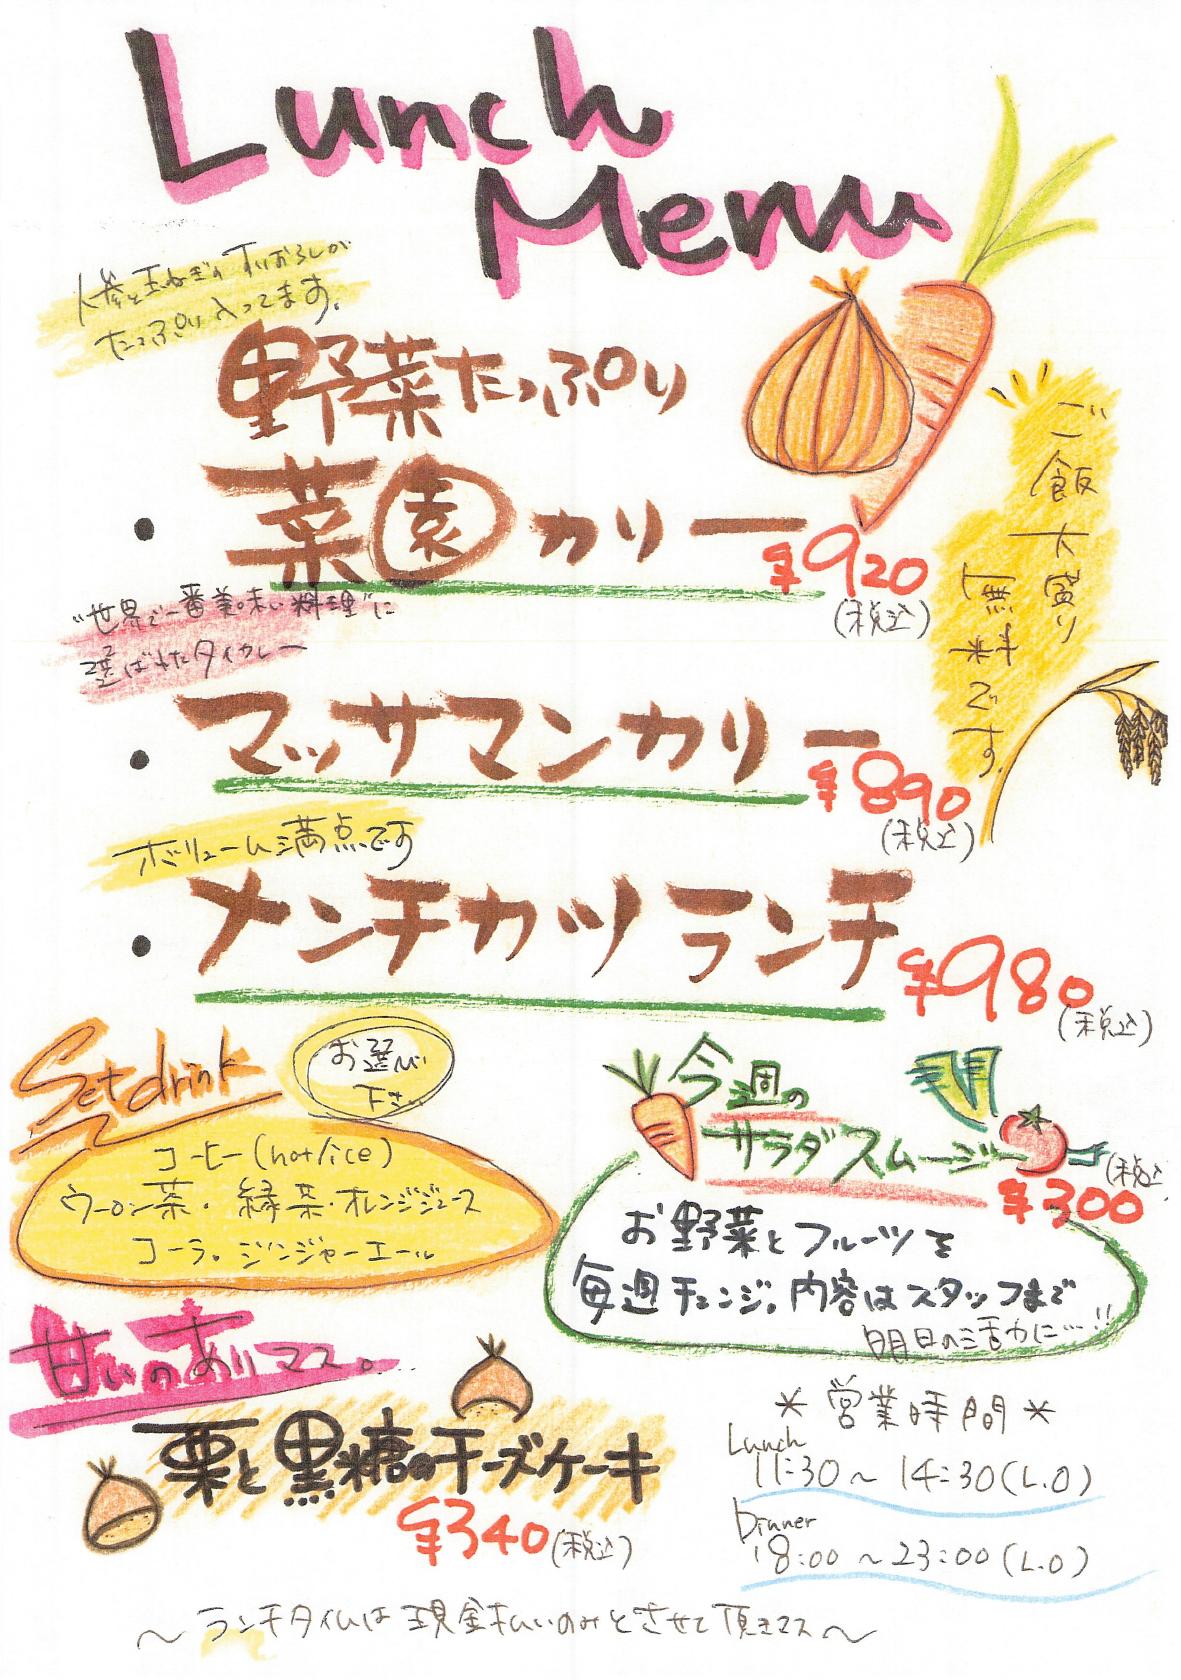 Lunch
Menu
人参と玉ねぎのすりおろしが
たっぷり入ってます。
野菜たっぷり
・菜園カリー ¥920
(税込)
ご飯大盛り
無料です。
"世界で一番美味い料理"に
選ばれたタイカレー
・マッサマンカリー ¥890
(税込)
ボリューム満点です
・メンチカツランチ ¥980
(税込)
Set drink
お選び
下さい
コーヒー(hot/ice)
ウーロン茶・緑茶・オレンジジュース
コーラ。ジンジャーエール
今週の
サラダスムージー
(税込
¥300
お野菜とフルーツを
毎週チェンジ。内容はスタッフまで
明日の活力に…!!
甘いのありマス。
栗と黒糖のチーズケーキ
¥340(税込)
*営業時間*
Lunch
11:30～14:30(L.O)
Dinner
18:00～23:00(L.O)
～ランチタイムは現金払いのみとさせて頂きマス～